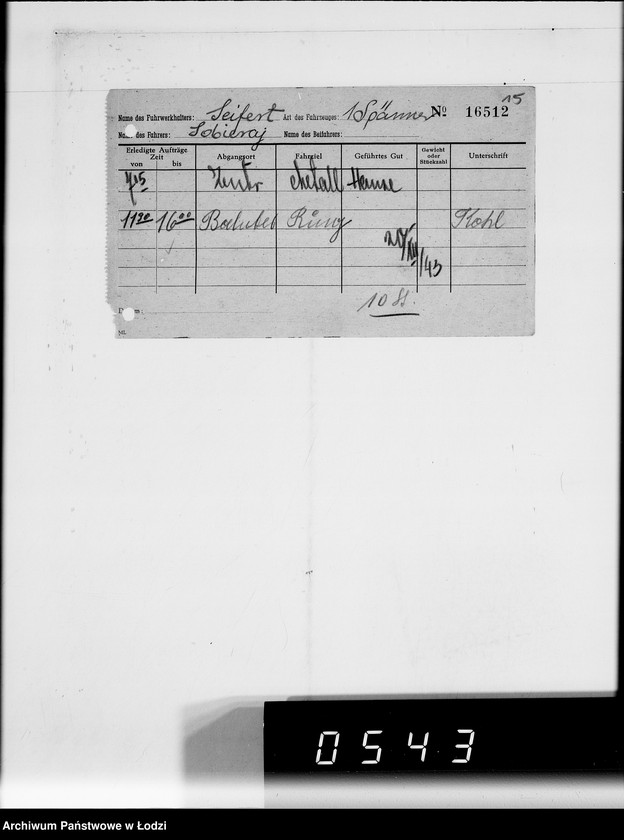 15
Name des Fuhrwerkhalters: Seifert Art des Fahrzeuges: 1 Spänner № 16512
Name des Fahrers: Sobieraj Name des Beifahrers:
Erledigte Aufträge Zeit von bis Abgangsort Fahrziel Geführtes Gut Gewicht oder Stückzahl Unterschrift
7 15 Zentr Metall
11 20 16 00 Ring Kohl
20/XII/43
10 St.
0543
Archiwum Państwowe w Łodzi